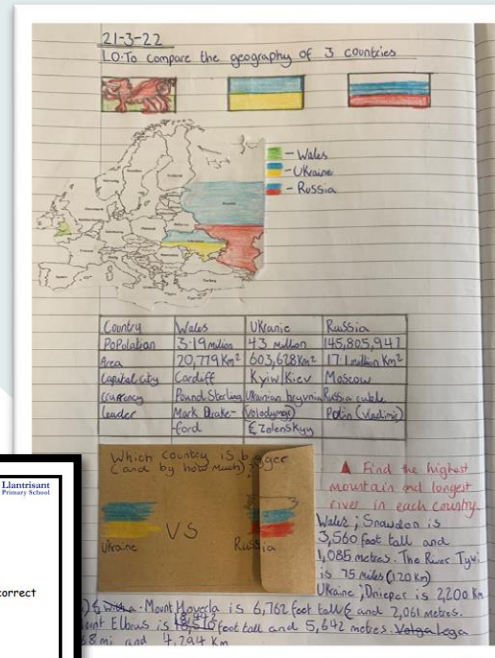 21-3-22
LO.To compare the geography of 3 countries
- Wales
- Ukraine
- Russia
Country Wales Ukranie Russia
Population 3.19 million 43 million 145,805,947
Area 20,779 Km² 603,628 Km² 17.1 million Km²
Capital city Cardiff Kyiw/Kiev Moscow
Currency Pound Sterling Ukrainian hryvnia Russia ruble
Leader Mark Drake- Volodymyr Putin (Vladimir)
-ford Zelenskyy
Which Country is bigger
(and by how much)
Ukraine VS Russia
Find the highest
mountain and longest
river in each country.
Wales; Snowdon is
3,560 foot tall and
1,085 metres. The River Tywi
is 75 miles (120 Km)
Ukraine; Dnieper is 2,200 Km
Mount Hoverla is 6,762 foot tall and 2,061 metres.
Mount Elbrus is foot tall and 5,642 metres.
mi and Km
Llantrisant
Primary School
correct